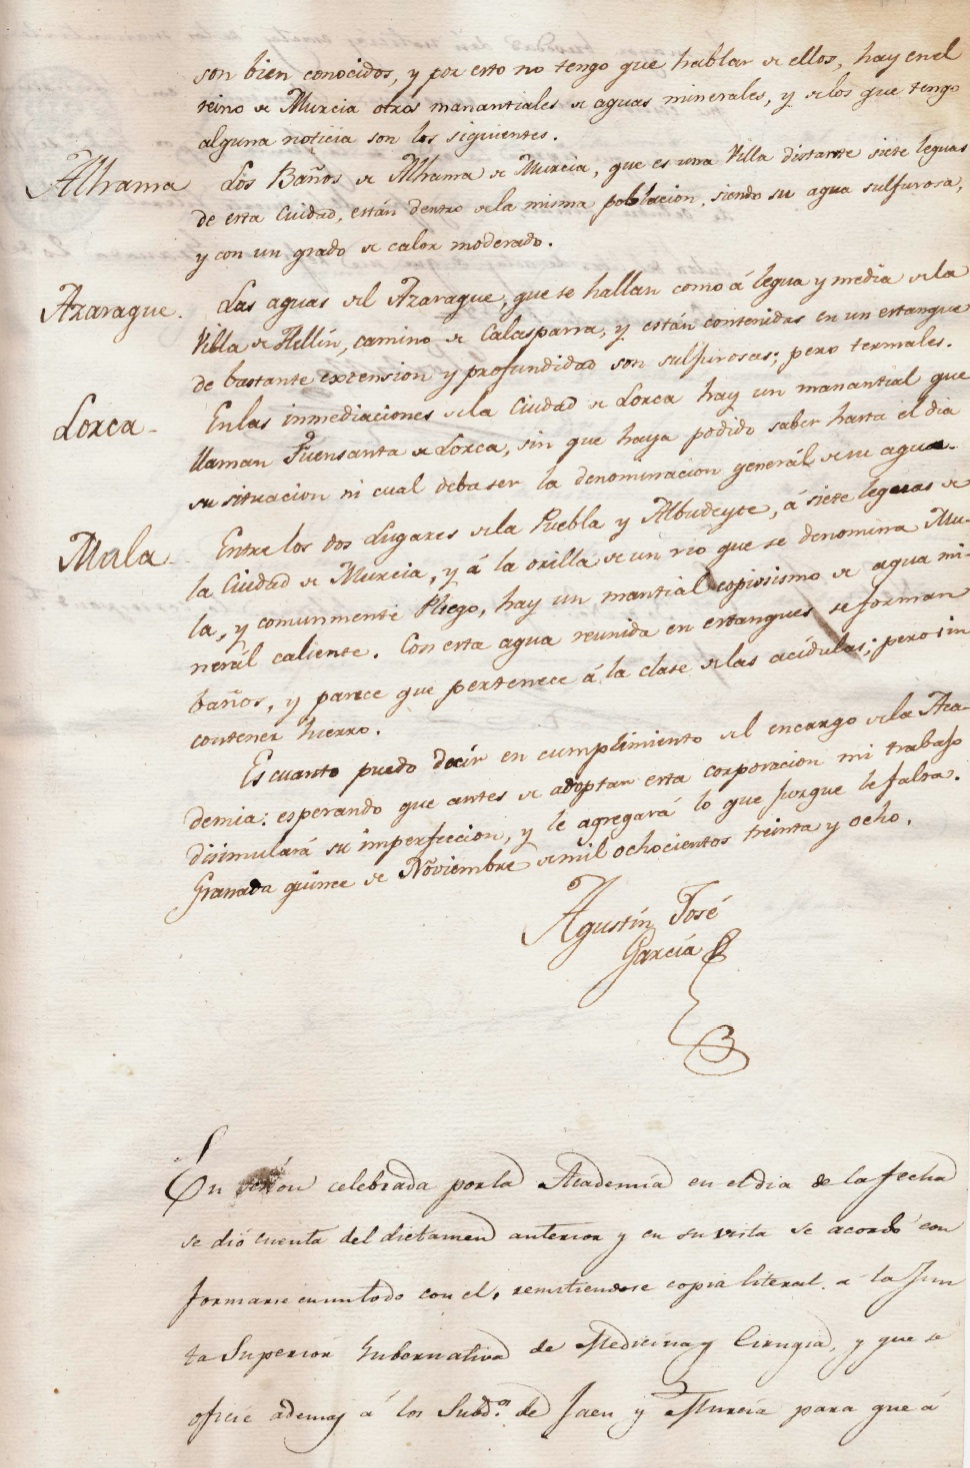 son bien conocidos, y por esto no tengo que hablar de ellos, hay en el
reino de Murcia otros manantiales de aguas minerales, y de los que tengo
alguna noticia son los siguientes.
Alhama
Los Baños de Alhama de Murcia, que es una Villa distante siete leguas
de esta Ciudad, están dentro de la misma poblacion, siendo su agua sulfurosa,
y con un grado de calor moderado.
Azaraque.
Las aguas del Azaraque, que se hallan como á legua y media de la
Villa de Hellín, camino de Calasparra, y están contenidas en un estanque
de bastante extension y profundidad son sulfurosas; pero termales.
Lorca-
En las inmediaciones de la Ciudad de Lorca hay un manantial que
llaman Fuensanta de Lorca, sin que haya podido saber hasta el dia
su situacion ni cual deba ser la denominacion generál de su agua.
Mula-
Entre los dos Lugares de la Puebla y Albudeyte, á siete leguas de
la Ciudad de Murcia, y á la orilla de un rio que se denomina Mu-
la, y comunmente Pliego, hay un mantial copiosisimo de agua mi-
nerál caliente. Con esta agua reunida en estanques se forman
baños, y parece que pertenece á la clase de las acídulas; pero sin
contener hierro.
Es cuanto puedo decir en cumplimiento del encargo de la Aca-
demia: esperando que antes de adoptar esta corporacion mi trabajo
disimulará su imperfeccion, y le agregará lo que juzgue le falta.
Granada quince de Noviembre de mil ochocientos treinta y ocho.
Agustín José
García
En sesión celebrada por la Academia en el dia de la fecha
se dió cuenta del dictamen anterior y en su vista se acordó con
formarse en un todo con el, remitiendose copia literal á la Jun
ta Superior Gubernativa de Medicina y Cirugia, y que se
oficie ademas á los Subd.os de Jaen y Murcia para que á